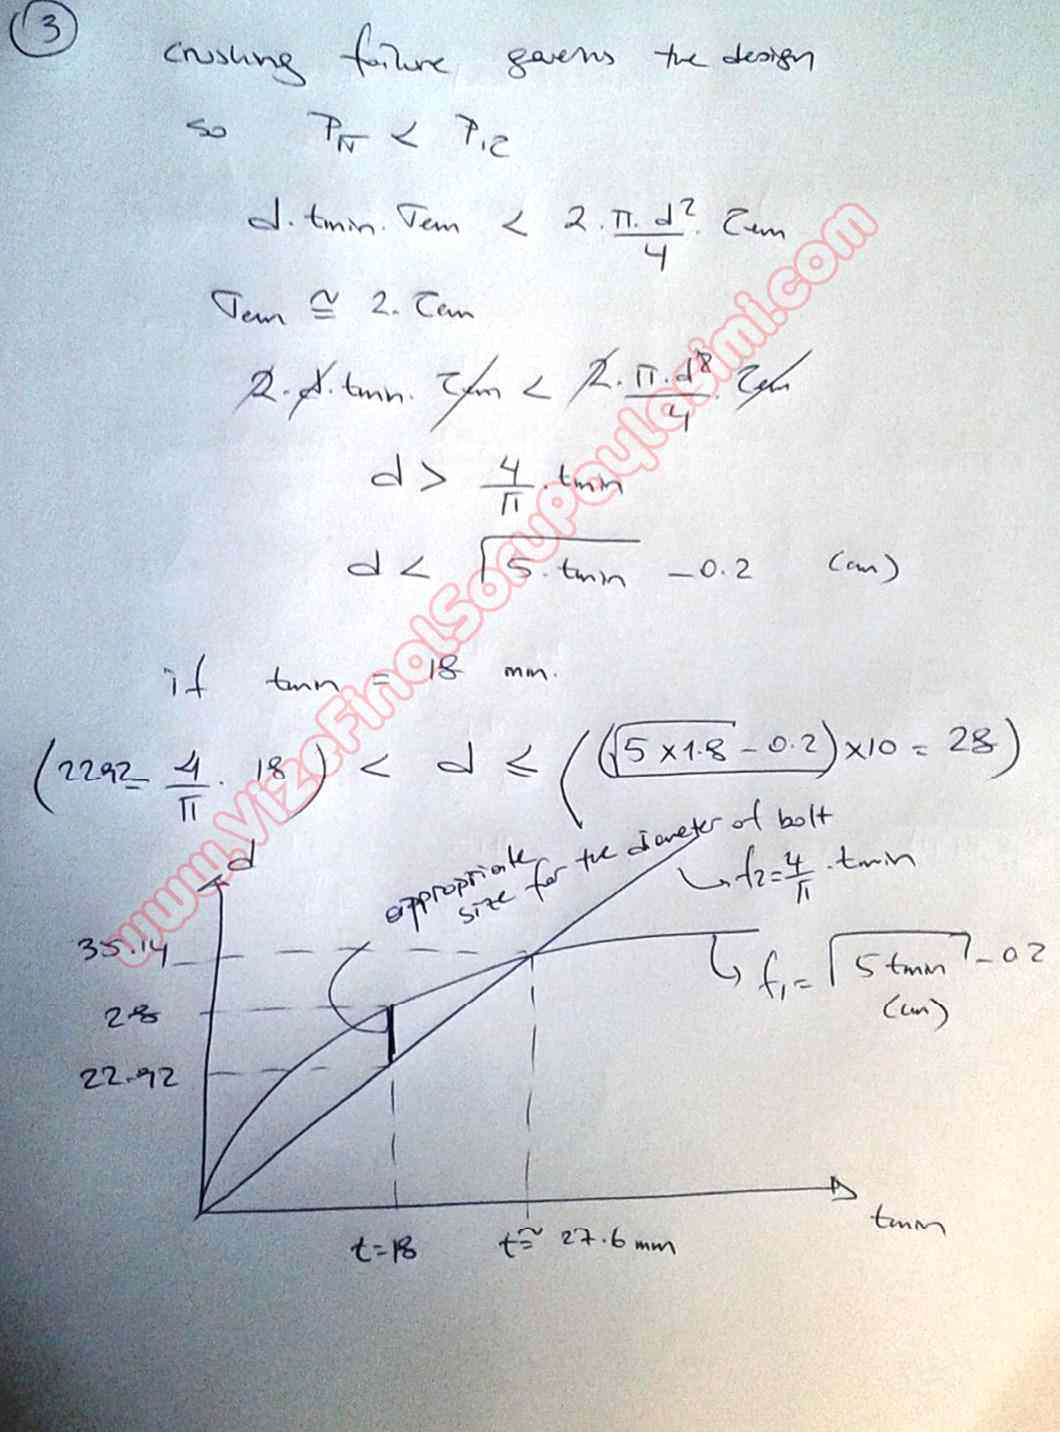 3
crushing failure governs the design
so Pπ < P12
d.tmin.σem < 2.π.d²/4.τem
σem ≅ 2.τem
2.d.tmin.τem < 2.π.d²/4.τem
d > 4/π.tmin
d < √5.tmin - 0.2 (cm)
if tmin = 18 mm.
(22.92 = 4/π.18) < d ≤ ((√5x1.8 - 0.2)x10 = 28)
appropriate size for the diameter of bolt
d
f2=4/π.tmin
35.14
f1=√5tmin - 0.2 (cm)
28
22.92
t=18
t≅27.6mm
tmin
www.VizeFinalSoruPaylasimi.com